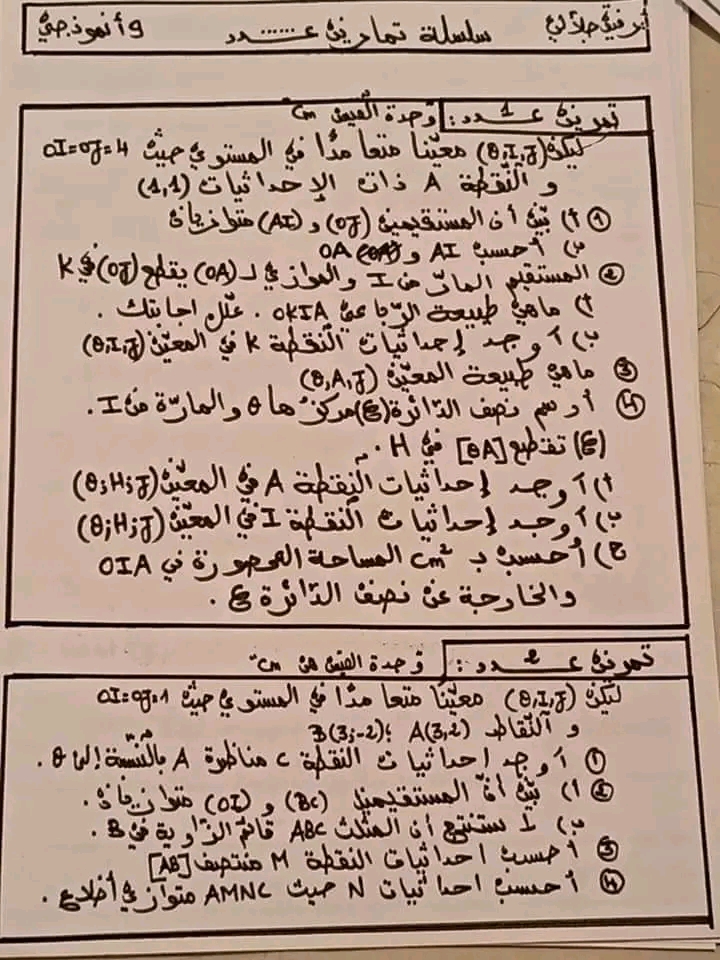 سلسلة تمارين عــدد ......
و أنموذجي
تمرين عــدد 1 : وحدة القيس cm
ليكن (O,I,J) معيّنا متعامدًا في المستوي حيث OI=OJ=4
و النّقطة A ذات الإحداثيات (1,1)
① أ) بيّن أن المستقيمين (OJ) و (AI) متوازيان
ب) أحسب AI و OA
② المستقيم المارّ من I والموازي لـ (OA) يقطع (OJ) في K
أ) ماهي طبيعة الرّباعي OKIA . علّل اجابتك .
ب) أوجد إحداثيات النّقطة K في المعيّن (O,I,J)
③ ماهي طبيعة المعيّن (O,A,J)
④ أرسم نصف الدّائرة (ع) مركزها O والمارّة من I .
(ع) تقطع [OA] في H .
أ) أوجد إحداثيات النّقطة A في المعيّن (O;H;J)
ب) أوجد إحداثيات النّقطة I في المعيّن (O;H;J)
ج) أحسب بـ cm² المساحة المحصورة في OIA
والخارجة عن نصف الدّائرة ع .
تمرين عــدد 2 : وحدة القيس هي cm
ليكن (O,I,J) معيّنا متعامدًا في المستوي حيث OI=OJ=1
و النّقاط A(3,2) ; B(3;-2)
① أوجد إحداثيات النقطة C مناظرة A بالنّسبة إلى O .
② أ) بيّن أنّ المستقيمين (BC) و (OI) متوازيان .
ب) استنتج أن المثلث ABC قائم الزّاوية في B .
③ أحسب احداثيات النقطة M منتصف [AB]
④ أحسب احداثيات N حيث AMNC متوازي أضلاع .